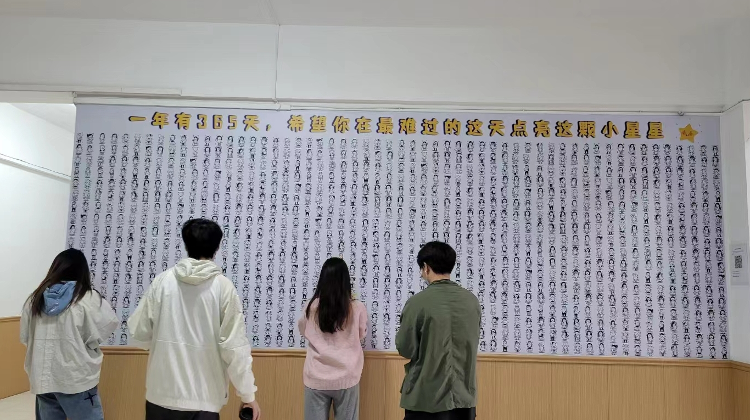 一年有365天，希望你在最难过的这天点亮这颗小星星